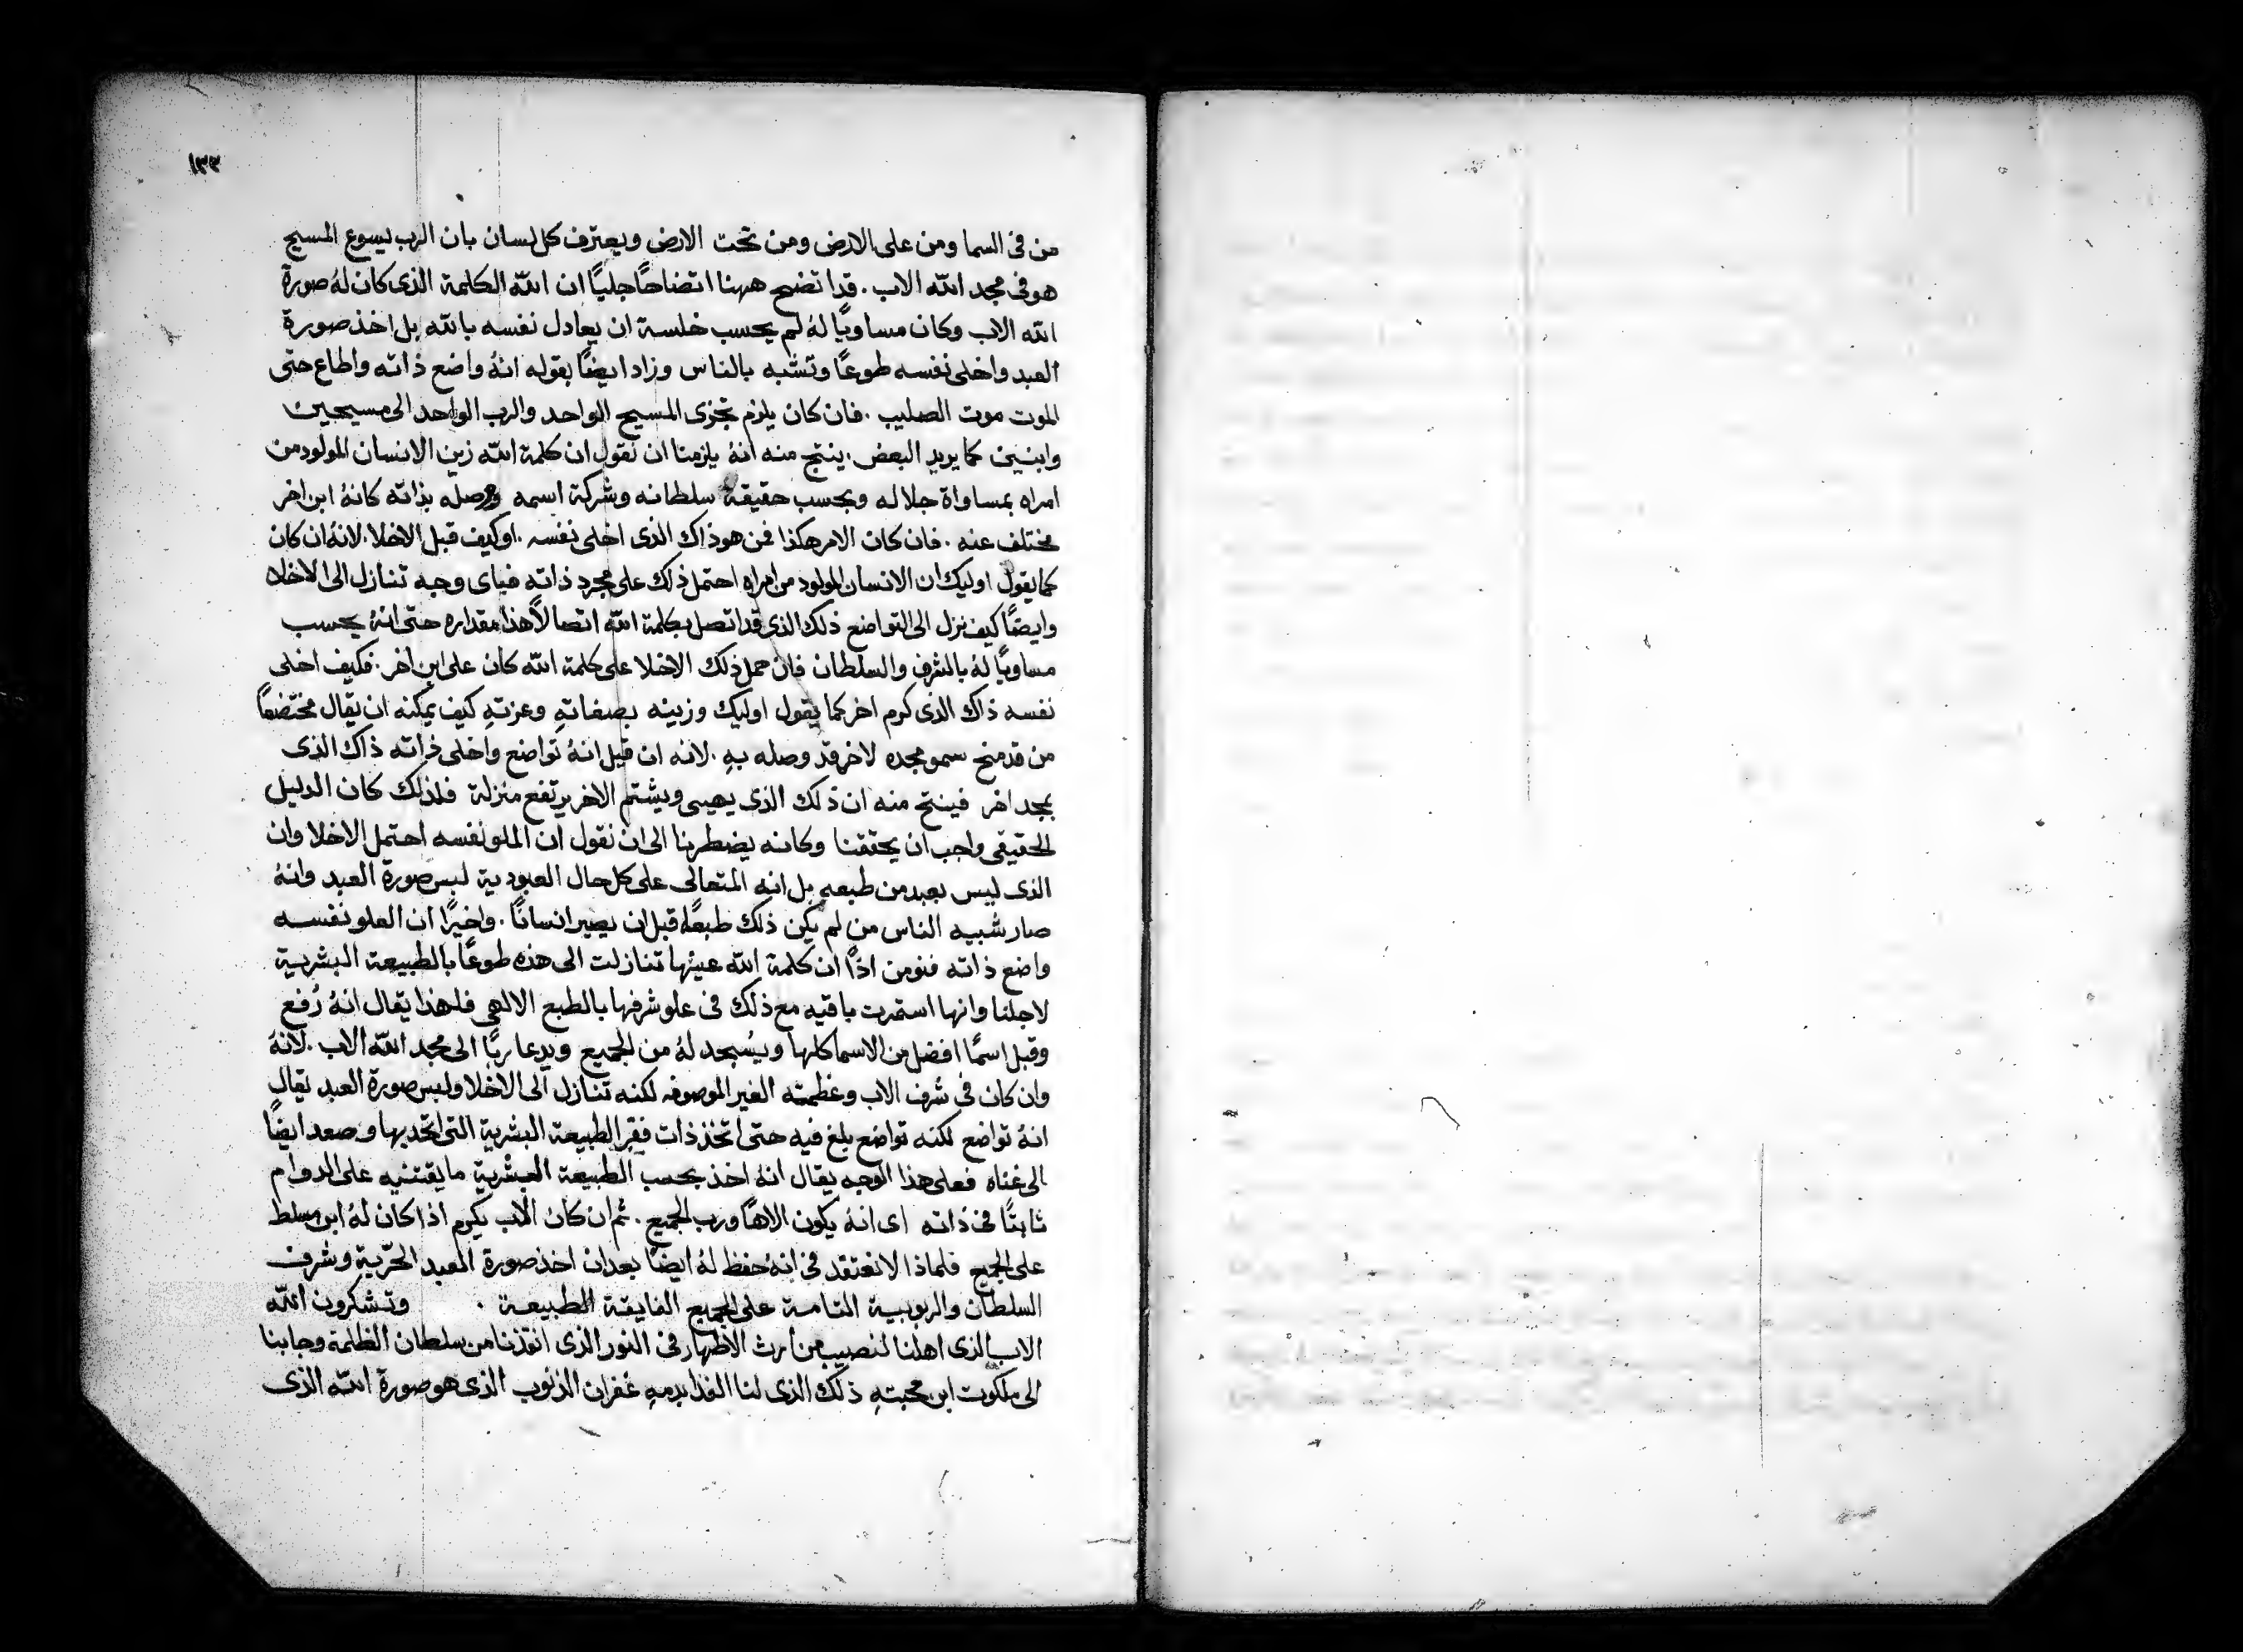 ١٣٣
من فى السما ومن على الارض ومن تحت الارض ويعترف كل لسان بان الرب يسوع المسيح
هو فى مجد الله الاب . قد اتضح ههنا اتضاحًا جليًا ان الله الكلمة الذى كان لهُ صورة
الله الاب وكان مساويًا لهُ لم يحسب خلسة ان يعادل نفسه بالله بل اخذ صورة
العبد واخلى نفسه طوعًا وتشبه بالناس وزاد ايضًا بقوله انهُ واضع ذاته واطاع حتى
الموت موت الصليب . فان كان يلزم تجزى المسيح الواحد والرب الواحد الى مسيحيين
وابنين كما يريد البعض . ينتج منه انهُ يلزمنا ان نقول ان كلمة الله زين الانسان المولود من
امراه بمساواة جلاله وبحسب حقيقة سلطانه وشركة اسمه ووصله بذاته كانهُ ابن اخر
مختلف عنه . فان كان الامر هكذا فمن هو ذاك الذى اخلى نفسه . او كيف قبل الاخلا . لانهُ ان كان
كما يقول اوليك ان الانسان المولود من امراه احتمل ذلك على مجرد ذاته فباى وجه تنازل الى الاخلا
وايضًا كيف نزل الى التواضع ذلك الذى قد اتصل بكلمة الله اتصالًا هذا مقداره حتى انهُ يحسب
مساويًا لهُ بالشرف والسلطان فان حمل ذلك الاخلا على كلمة الله كان على ابن اخر . فكيف اخلى
نفسه ذاك الذى كرم اخر كما يقول اوليك وزينه بصفاتهِ وعزتهِ كيف يمكنه ان يقال مختضعًا
من قد منح سمو مجده لاخر قد وصله بهِ . لانه ان قيل انهُ تواضع واخلى ذاته ذاك الذى
مجد اخر فينتج منه ان ذلك الذى يهيى ويشتم الاخر يرتفع منزلة فلذلك كان الدليل
الحقيقى واجب ان يحققنا وكانه يضطرنا الى ان نقول ان الملو نفسه احتمل الاخلا وان
الذى ليس بعبد من طبعه بل انه المتعالى على كل حال العبودية لبس صورة العبد وانهُ
صار شبيه الناس من لم يكن ذلك طبعًا قبل ان يصير انسانًا . واخيرًا ان العلو نفسه
واضع ذاته فنومن اذًا ان كلمة الله عينها تنازلت الى هذه طوعًا بالطبيعة البشرية
لاجلنا وانها استمرت باقيه مع ذلك فى علو شرفها بالطبع الالهى فلهذا يقال انهُ رُفع
وقبل اسمًا افضل من الاسما كلها ويُسجد لهُ من الجميع ويدعا ربًا الى مجد الله الاب . لانهُ
وان كان فى شرف الاب وعظمته الغير الموصوفه لكنه تنازل الى الاخلا ولبس صورة العبد يقال
انهُ تواضع لكنه تواضع بلغ فيه حتى اتخذ ذات فقر الطبيعة البشرية التى اتحد بها وصعد ايضًا
الى غناه فعلى هذا الوجه يقال انهُ اخذ بحسب الطبيعة البشرية ما يقتنيه على الدوام
ثابتًا فى ذاته اى انهُ يكون الاهًا ورب الجميع . ثم ان كان الاب يكرم اذا كان لهُ ابن مسلط
على الجميع فلماذا لا نعتقد فى انهُ حفظ لهُ ايضًا بعد ان اخذ صورة العبد الحرّية وشرف
السلطان والربوبية التامة على الجميع الفايقة الطبيعة . وتشكرون الله
الاب الذى اهلنا لنصيب من ارث الاطهار فى النور الذى انقذنا من سلطان الظلمة وجابنا
الى ملكوت ابن محبتهِ ذلك الذى لنا الفدا بدمهِ غفران الذنوب الذى هو صورة الله الذى